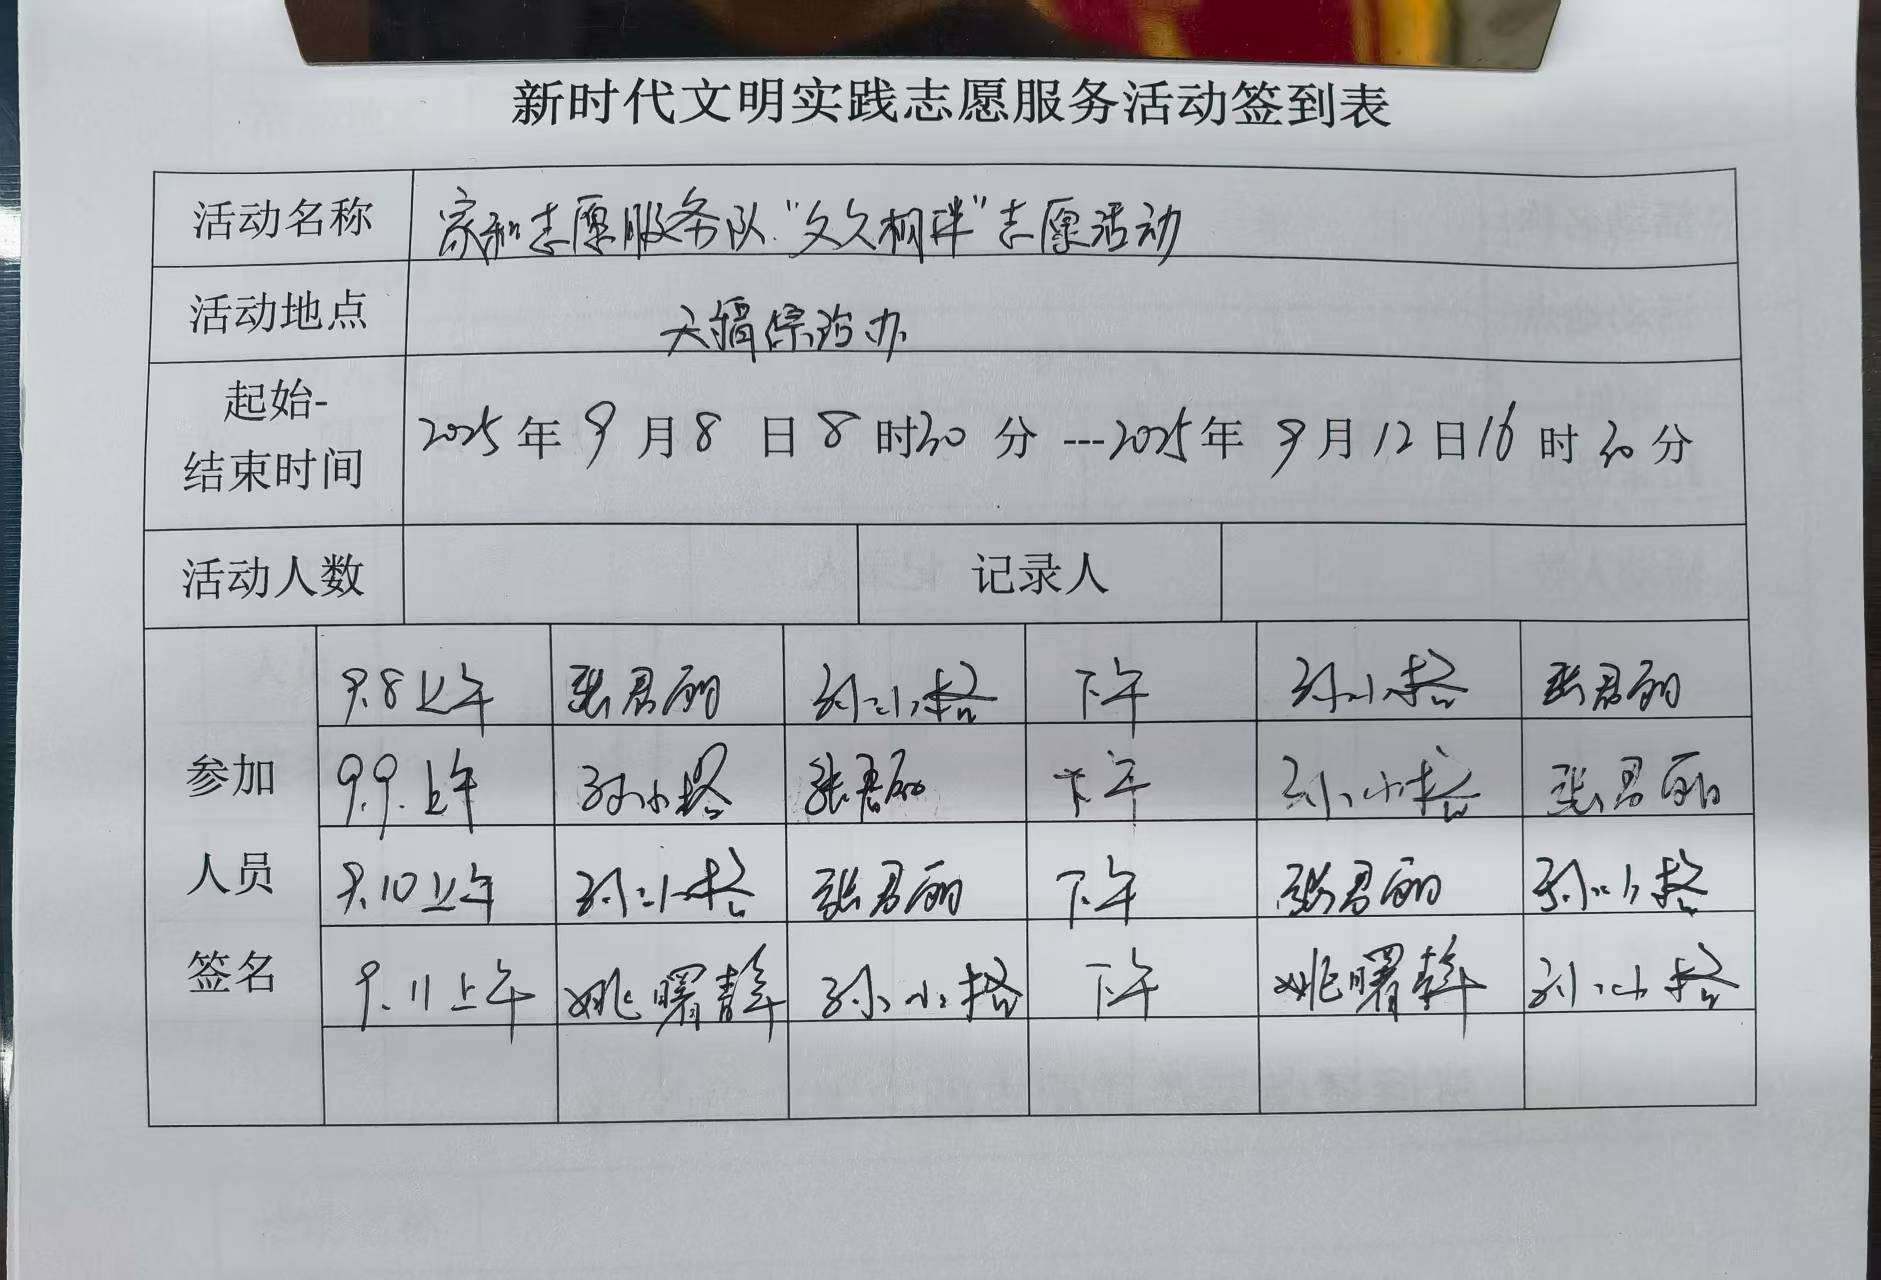 新时代文明实践志愿服务活动签到表
活动名称 家和志愿服务队"文久相伴"志愿活动
活动地点 综治办
起始-
结束时间 2025年9月8日8时30分---2025年9月12日16时30分
活动人数 记录人
参加
人员
签名
9.8上午 张君丽 孙小格 下午 孙小格 张君丽
9.9.上午 孙小格 张君丽 下午 孙小格 张君丽
9.10上午 孙小格 张君丽 下午 张君丽 孙小格
9.11上午 姚曙静 孙小格 下午 姚曙静 孙小格